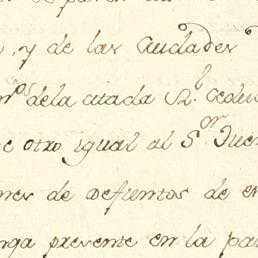 y de las Ciudades
de la citada Rl. Cedu
otro igual al Sor. Jue
nes de Defuntos de
presente en la pa